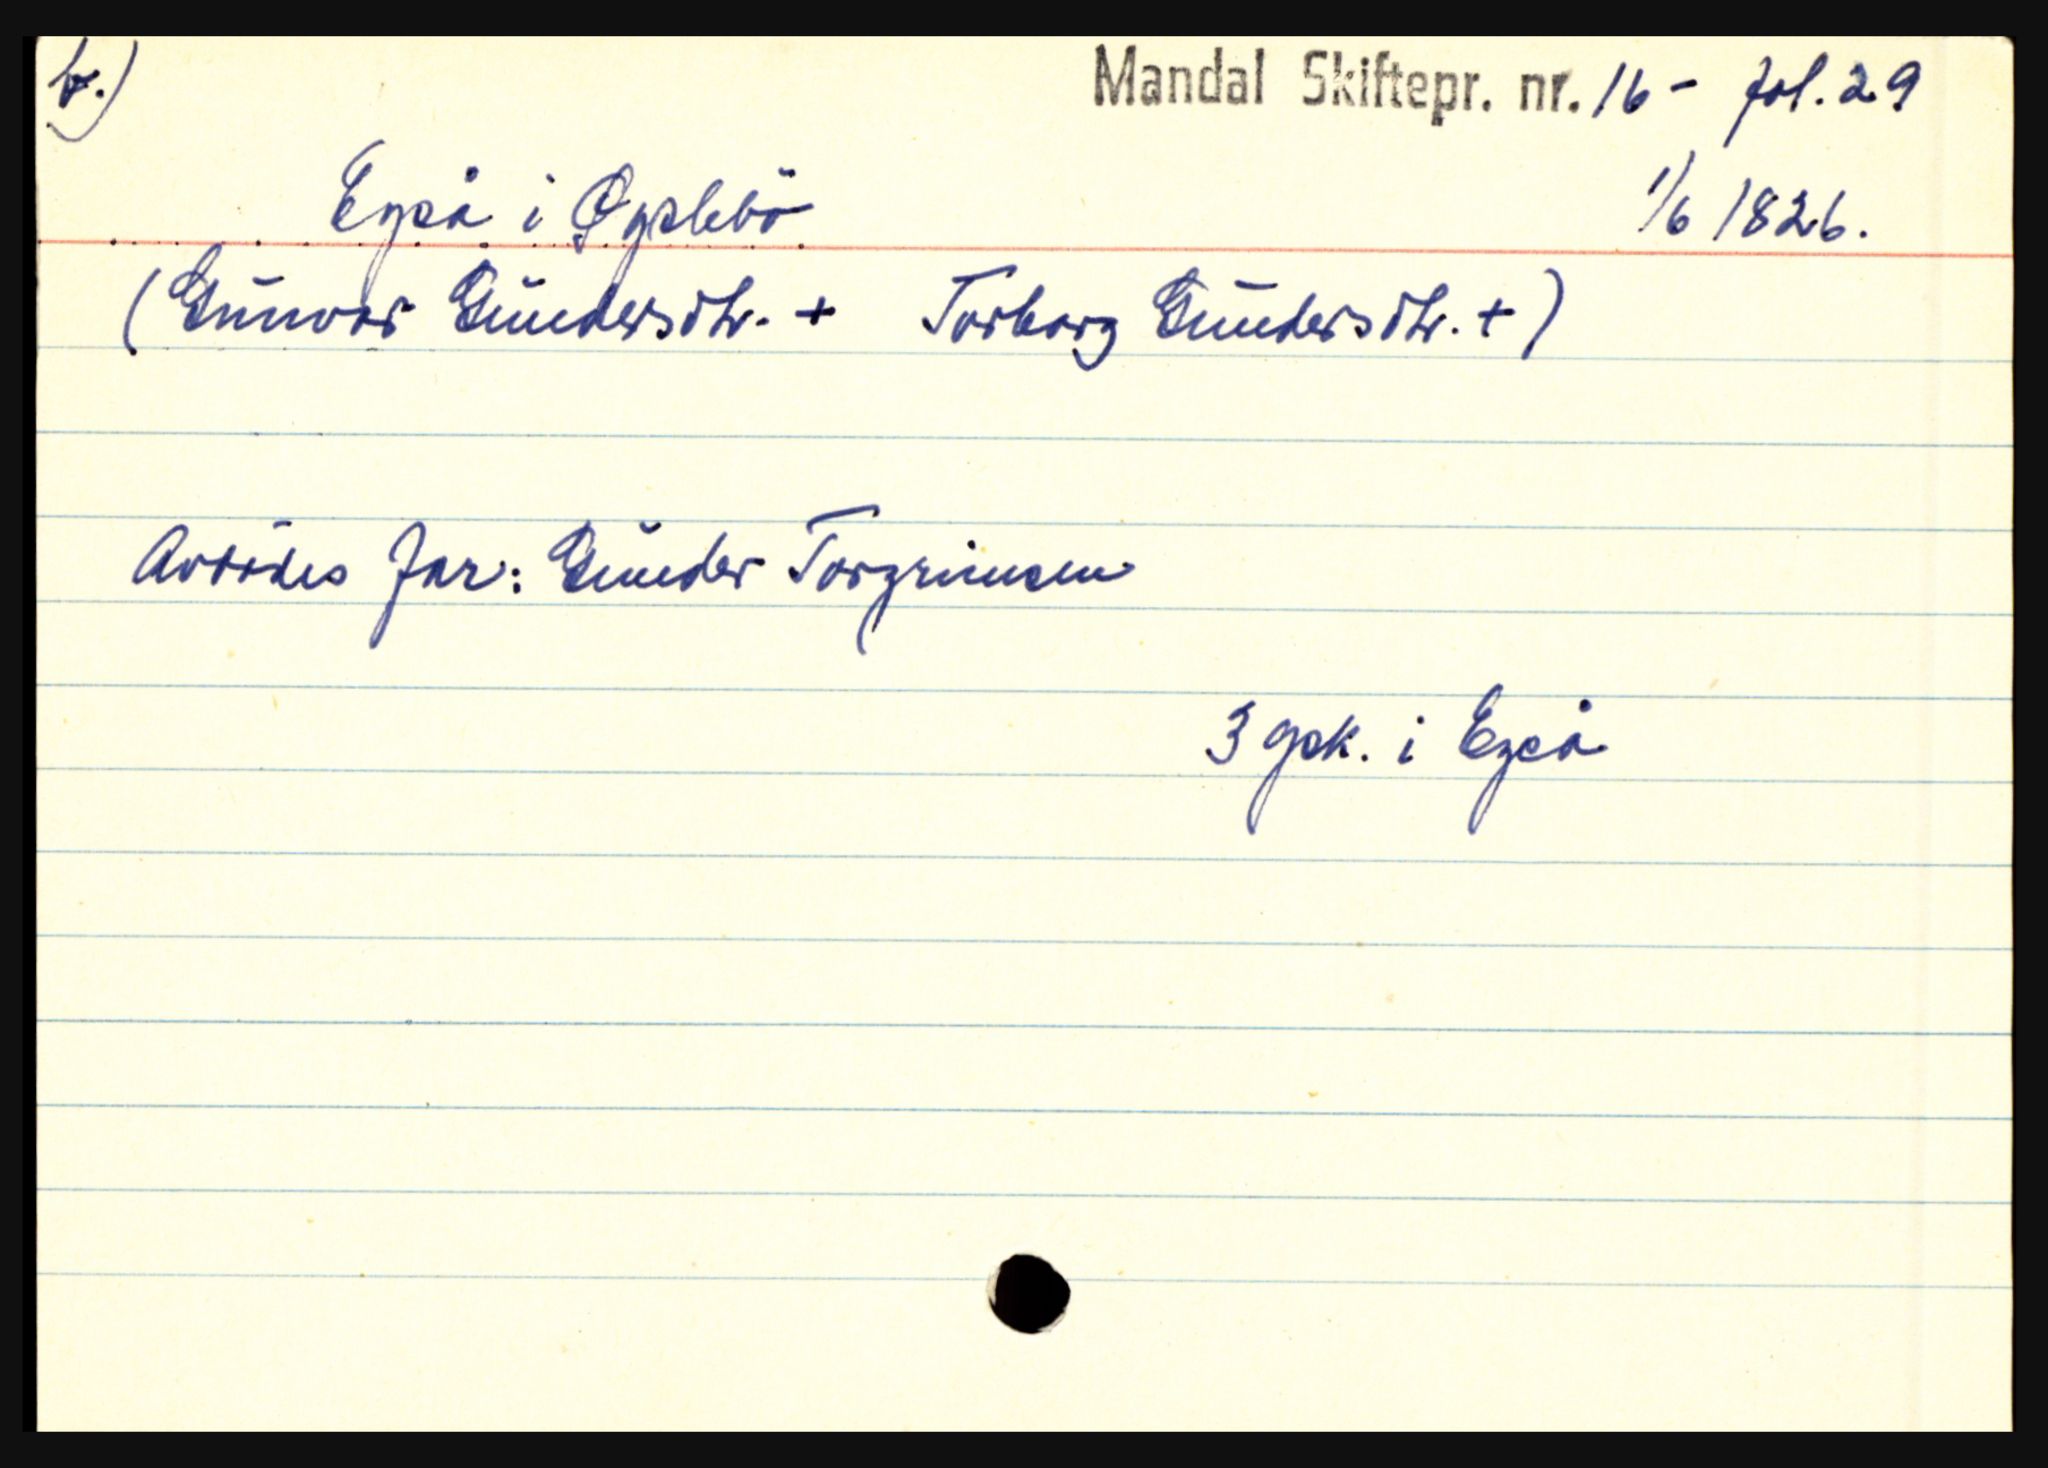 b.)
Mandal Skiftepr. nr. 16 - fol. 29
Egså i Øyslebö
1/6 1826.
(Gunvor Gundersdtr. + Torborg Gundersdtr. +)
Avdödes far: Gunder Torgrimsen
3 gsk. i Egså